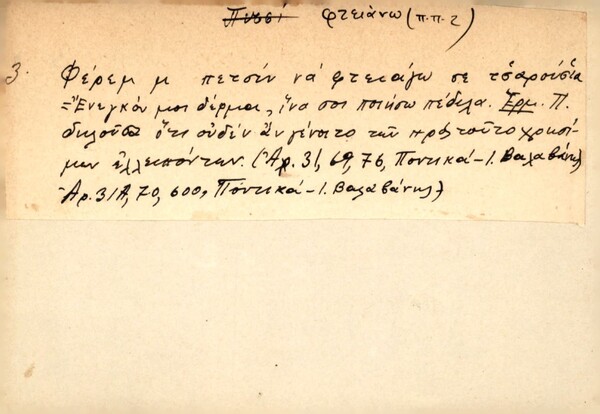 Πετσί φτειάνω (π.π. 2)
3. Φέρεμ μ πετσίν νά φτειάγω σε τσαρούσια
= Ἔνεγκόν μοι δέρμα, ἵνα σοι ποιήσω πέδιλα. Ἑρμ. Π.
δηλοῦσα ὅτι οὐδέν ἄν γένοιτο τῶν πρός τοῦτο χρησί-
μων ἐλλειπόντων. (Ἀρ. 31, 69, 76, Ποντικά - Ι. Βαλαβάνης
Ἀρ. 31Α, 70, 600, Ποντικά - Ι. Βαλαβάνης)